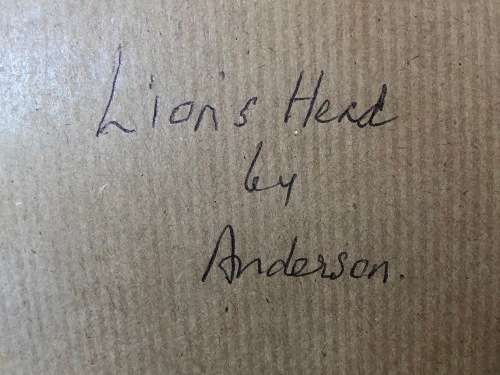 Lion's Head
by
Anderson.